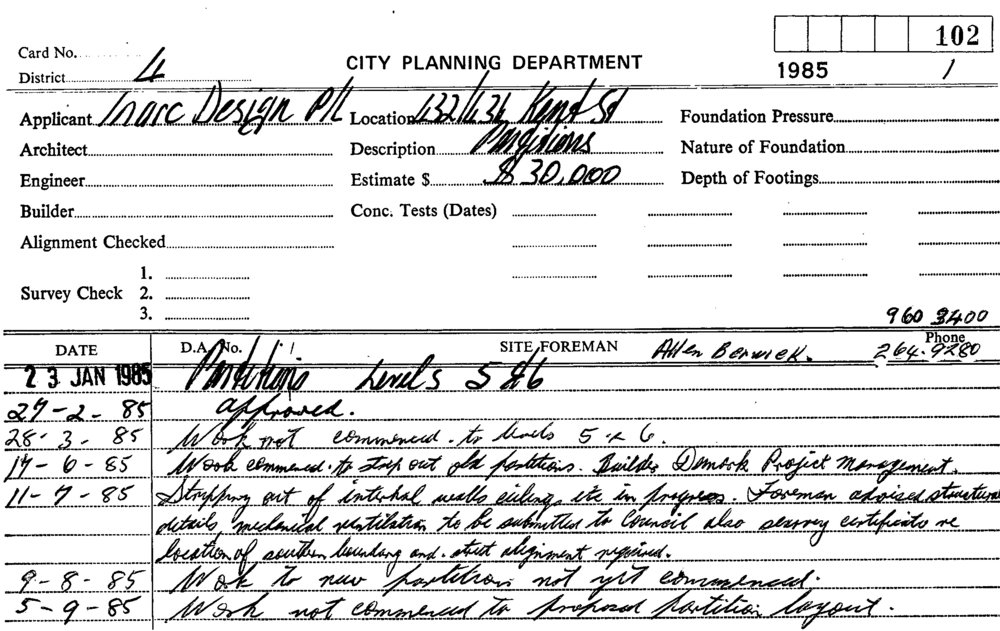 Card No.
102
District 4
CITY PLANNING DEPARTMENT
1985 /
Applicant Inarc Design P/L Location 432/434 Kent St Foundation Pressure
Architect Description Partitions Nature of Foundation
Engineer Estimate $ $30,000 Depth of Footings
Builder Conc. Tests (Dates)
Alignment Checked
1.
Survey Check 2.
3.
960 3400
DATE D.A. No. SITE FOREMAN Allen Berwick. Phone 264-9280
23 JAN 1985 Partitions Levels 5 & 6
27-2-85 approved.
28-3-85 Work not commenced to levels 5 & 6.
17-6-85 Work commenced to strip out old partitions. Builder Demark Project Management.
11-7-85 Stripping out of internal walls ceilings etc in progress. Foreman advised structural
details, mechanical ventilation to be submitted to Council also survey certificate re
location of southern boundary and street alignment required.
9-8-85 Work to new partition not yet commenced.
5-9-85 Work not commenced to proposed partition layout.